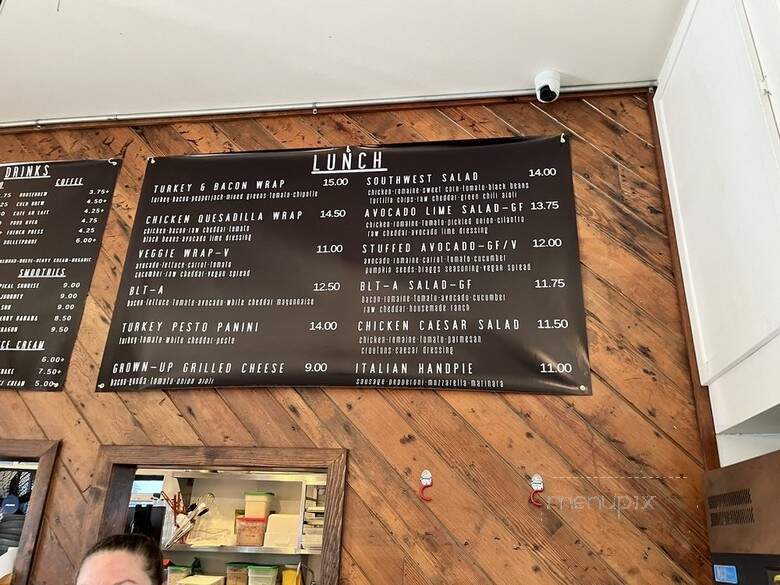 DRINKS
COFFEE
3.75+
COLD BREW 4.50+
CAFE AU LAIT 4.25+
POUR OVER 4.75
FRENCH PRESS 4.25
BULLETPROOF 6.00+
SMOOTHIES
9.00
9.00
9.00
8.50
9.50
ICE CREAM
6.00+
7.50
ICE CREAM 5.00+
LUNCH
TURKEY & BACON WRAP 15.00
turkey-bacon-pepperjack-mixed greens-tomato-chipotle
CHICKEN QUESADILLA WRAP 14.50
chicken-bacon-raw cheddar-tomato
black beans-avocado lime dressing
VEGGIE WRAP-V 11.00
avocado-lettuce-carrot-tomato
cucumber-raw cheddar-vegan spread
BLT-A 12.50
bacon-lettuce-tomato-avocado-white cheddar-mayonnaise
TURKEY PESTO PANINI 14.00
turkey-tomato-white cheddar-pesto
GROWN-UP GRILLED CHEESE 9.00
bacon-gouda-tomato-onion aioli
SOUTHWEST SALAD 14.00
chicken-romaine-sweet corn-tomato-black beans
tortilla chips-raw cheddar-green chili aioli
AVOCADO LIME SALAD-GF 13.75
chicken-romaine-tomato-pickled onion-cilantro
raw cheddar-avocado lime dressing
STUFFED AVOCADO-GF/V 12.00
avocado-romaine-carrot-tomato-cucumber
pumpkin seeds-braggs seasoning-vegan spread
BLT-A SALAD-GF 11.75
bacon-romaine-tomato-avocado-cucumber
raw cheddar-housemade ranch
CHICKEN CAESAR SALAD 11.50
chicken-romaine-tomato-parmesan
croutons-caesar dressing
ITALIAN HANDPIE 11.00
sausage-pepperoni-mozzarella-marinara
menupix